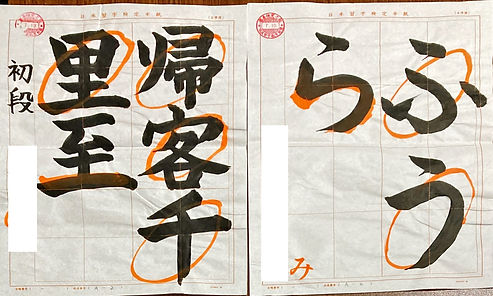 日本習字検定半紙
帰客千
里至
初段
日本習字検定半紙
ふう
ら
み